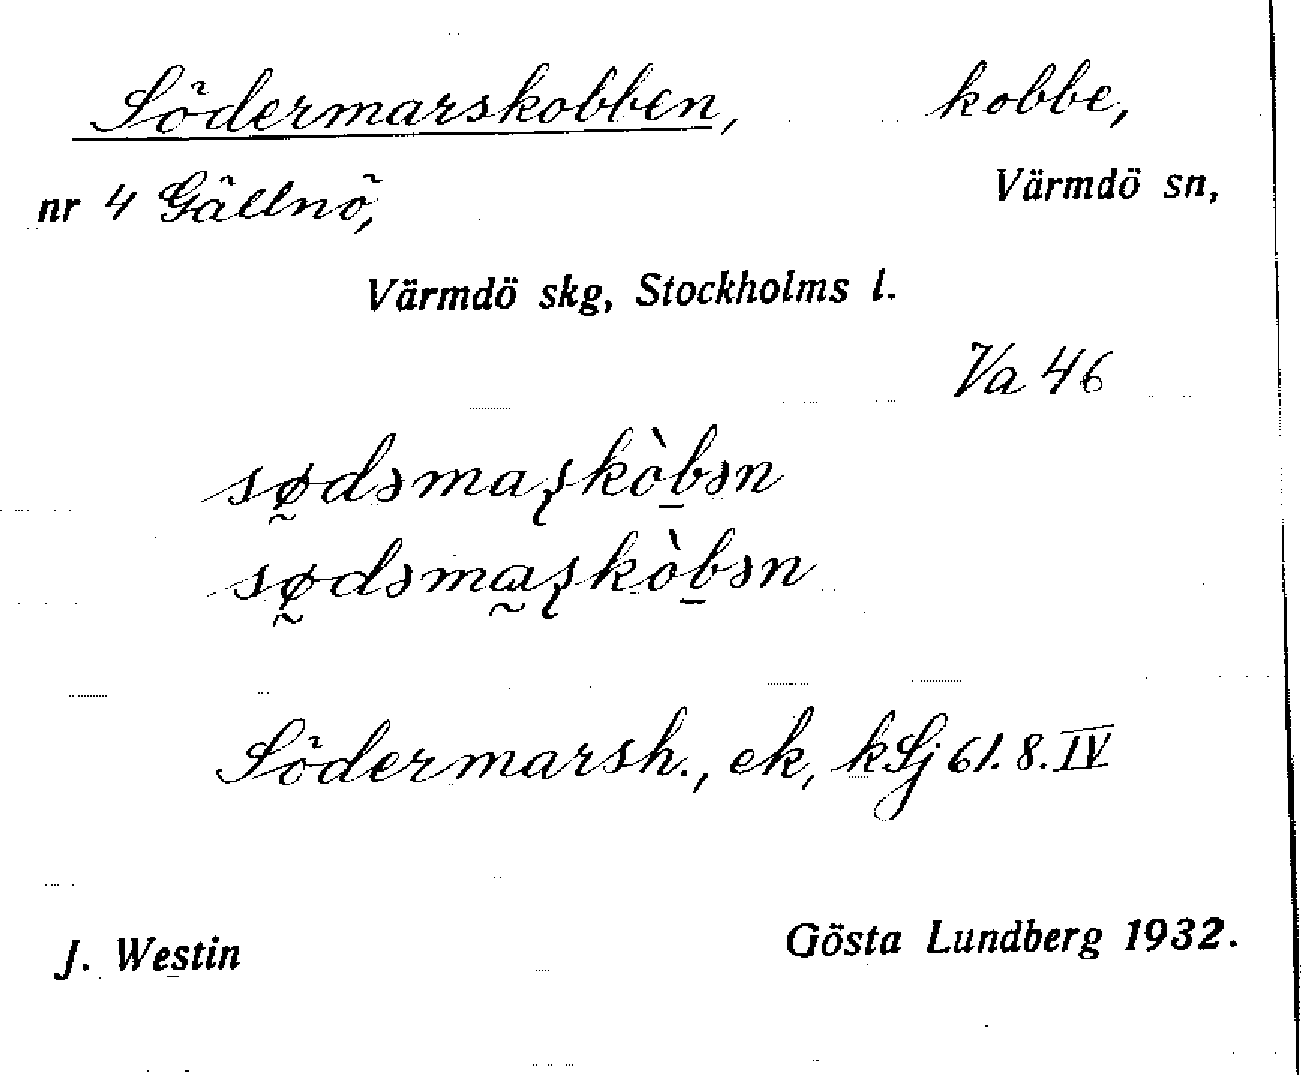 Södermarskobben, kobbe,
nr 4 Gällnö, Värmdö sn,
Värmdö skg, Stockholms l.
Va 46
sø̰dəmaʂkòb̲ən
sø̰dəma̰ʂkòb̲ən
Södermarsh., ek, kSj 61. 8. IV
J. Westin Gösta Lundberg 1932.